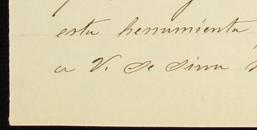 esta herramienta
a V. se sirva